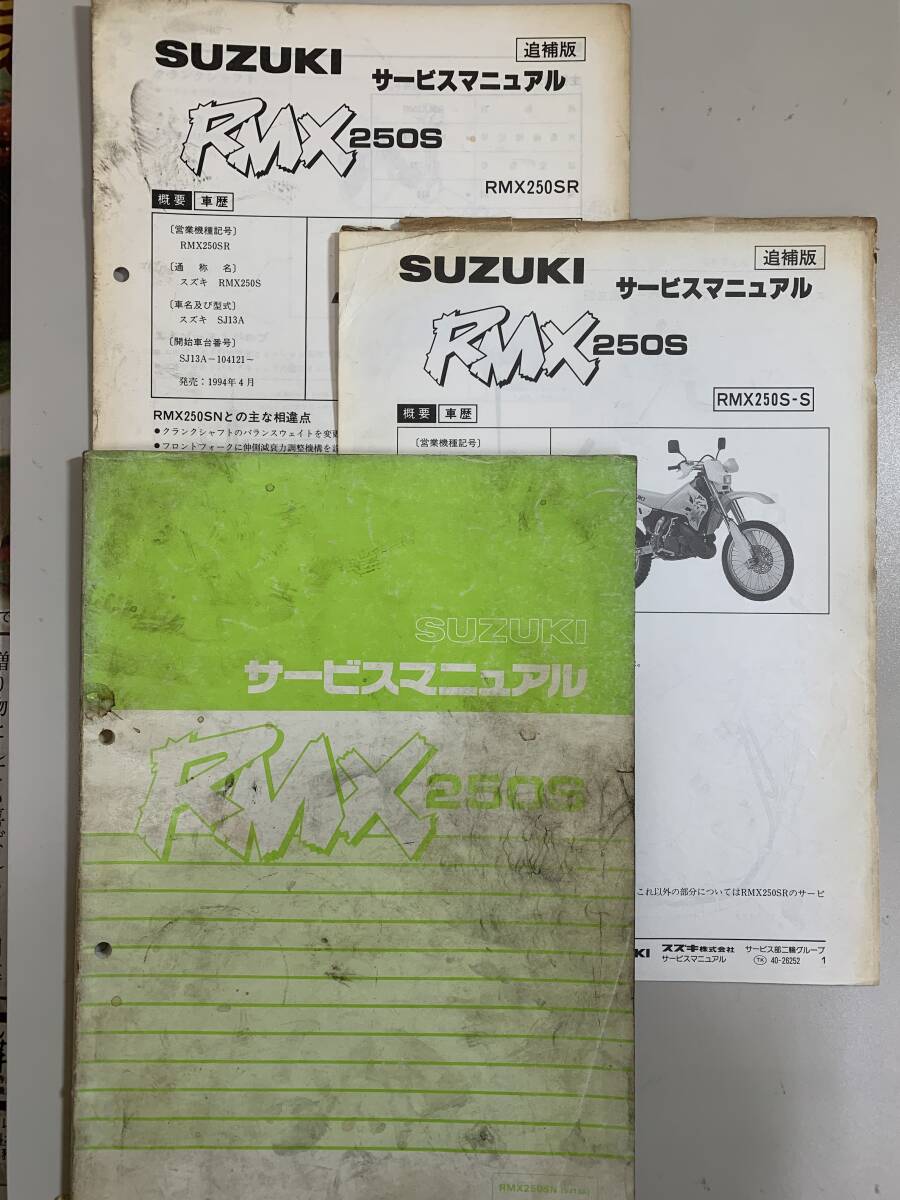 SUZUKI
追補版
サービスマニュアル
RMX250S
RMX250SR
概要 車歴
〔営業機種記号〕
RMX250SR
〔通称名〕
スズキ RMX250S
〔車名及び型式〕
スズキ SJ13A
〔開始車台番号〕
SJ13A-104121-
発売：1994年4月
RMX250SNとの主な相違点
●クランクシャフトのバランスウェイトを変更
●フロントフォークに伸側減衰力調整機構を
SUZUKI
追補版
サービスマニュアル
RMX250S
RMX250S-S
概要 車歴
〔営業機種記号〕
これ以外の部分についてはRMX250SRのサービ
KI スズキ株式会社 サービス部二輪グループ
サービスマニュアル TK 40-26252 1
SUZUKI
サービスマニュアル
RMX250S
RMX250SN